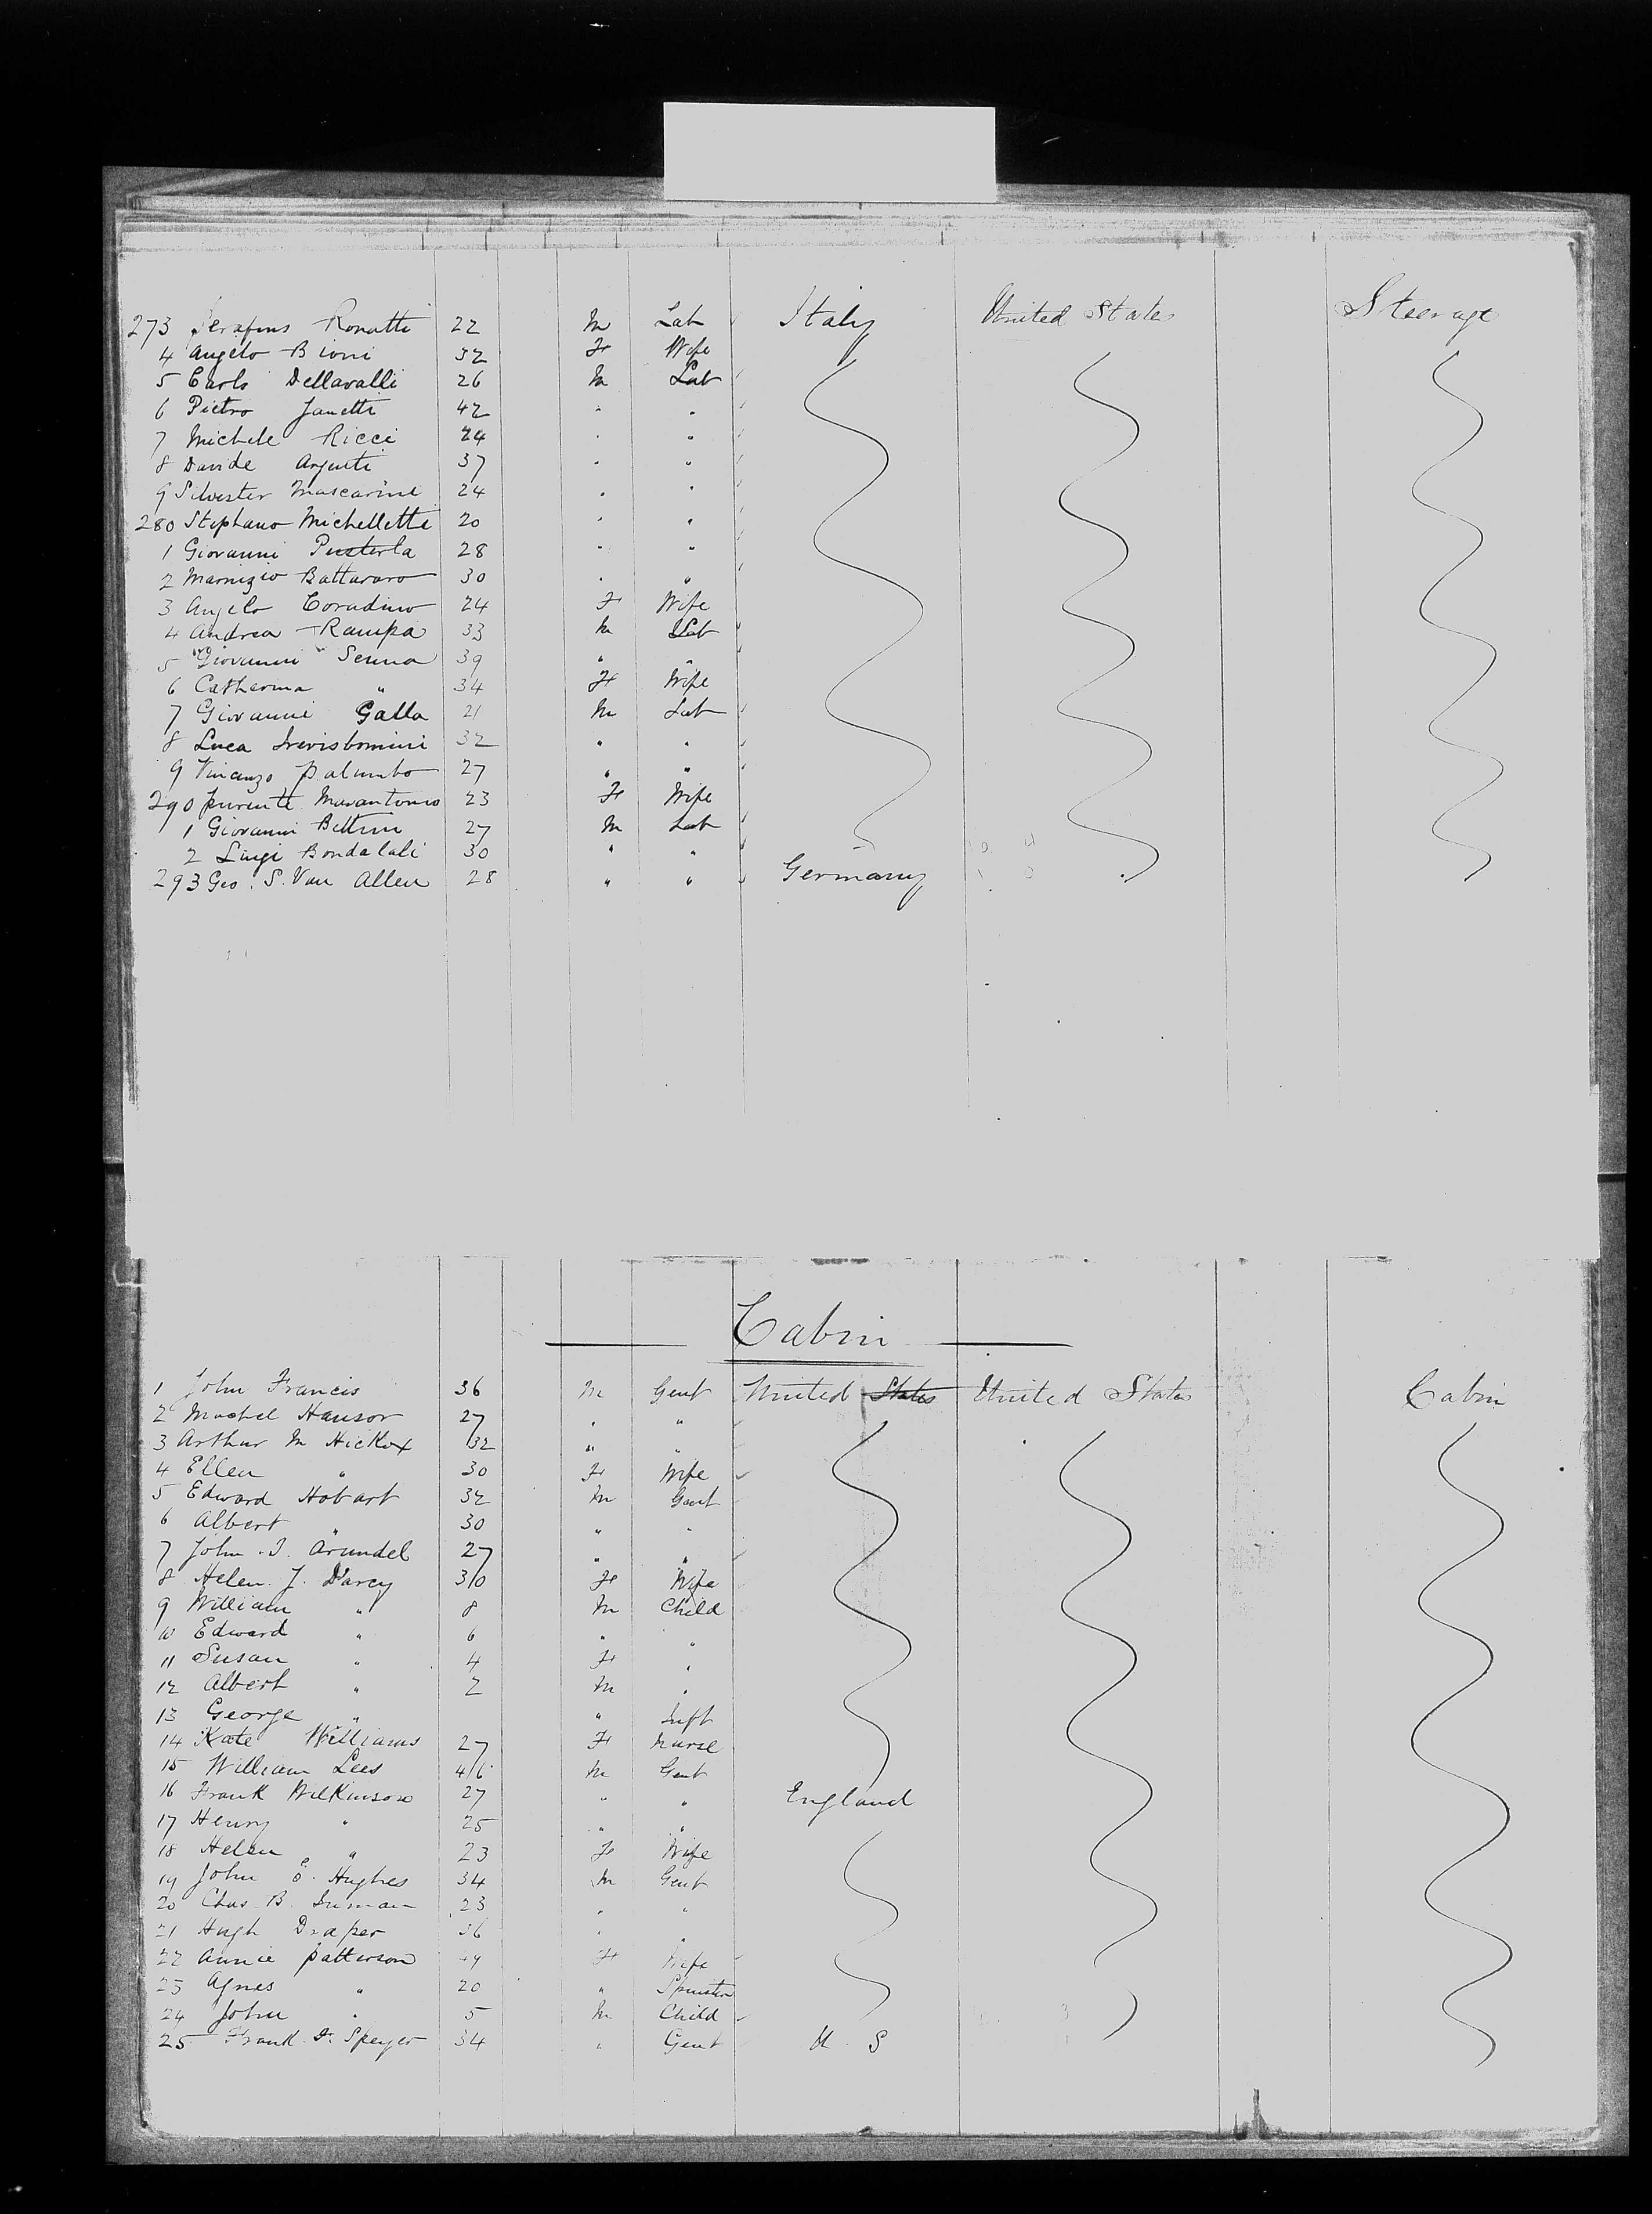 273 Serafino Ronatti 22 M Lab Italy United States Steerage
4 Angelo Bioni 32 F Wife
5 Carlo Dellavalli 26 M Lab
6 Pietro Janetti 42 " "
7 Michele Ricci 24 " "
8 Davide Arguti 37 " "
9 Silvester Mascarini 24 " "
280 Stephano Michelletti 20 " "
1 Giovanni Pusterla 28 " "
2 Battararo 30 " "
3 Angelo Coradino 24 F Wife
4 Andrea Rampa 33 M Lab
5 Giovanni Senna 39 " "
6 Catherina " 34 F Wife
7 Giovanni Galla 21 M Lab
8 Luca 32 " "
9 Vincenzo Palumbo 27 " "
290 Marantonio 23 F Wife
1 Giovanni Bettini 27 M Lab
2 Luigi Bondalali 30 " "
293 Geo. S. Van Allen 28 " " Germany
Cabin
1 John Francis 36 M Gent United States United States Cabin
2 Hanson 27 " "
3 Arthur M Hickox 32 " "
4 Ellen " 30 F Wife
5 Edward Hobart 32 M Gent
6 Albert " 30 " "
7 John . I. Arundel 27 " "
8 Helen. J. D'arcy 30 F Wife
9 William " 8 M Child
10 Edward " 6 " "
11 Susan " 4 F "
12 Albert " 2 M "
13 George " " Inft
14 Kate Williams 27 F Nurse
15 William Lees 46 M Gent
16 Frank Wilkinson 27 " " England
17 Henry " 25 " "
18 Helen " 23 F Wife
19 John E. Hughes 34 M Gent
20 Chas. B. Inman 23 " "
21 Hugh Draper 36 " "
22 Annie Patterson 49 F Wife
23 Agnes " 20 " Spinster
24 John " 5 M Child
25 Frank. D. Speyer 34 " Gent U. S